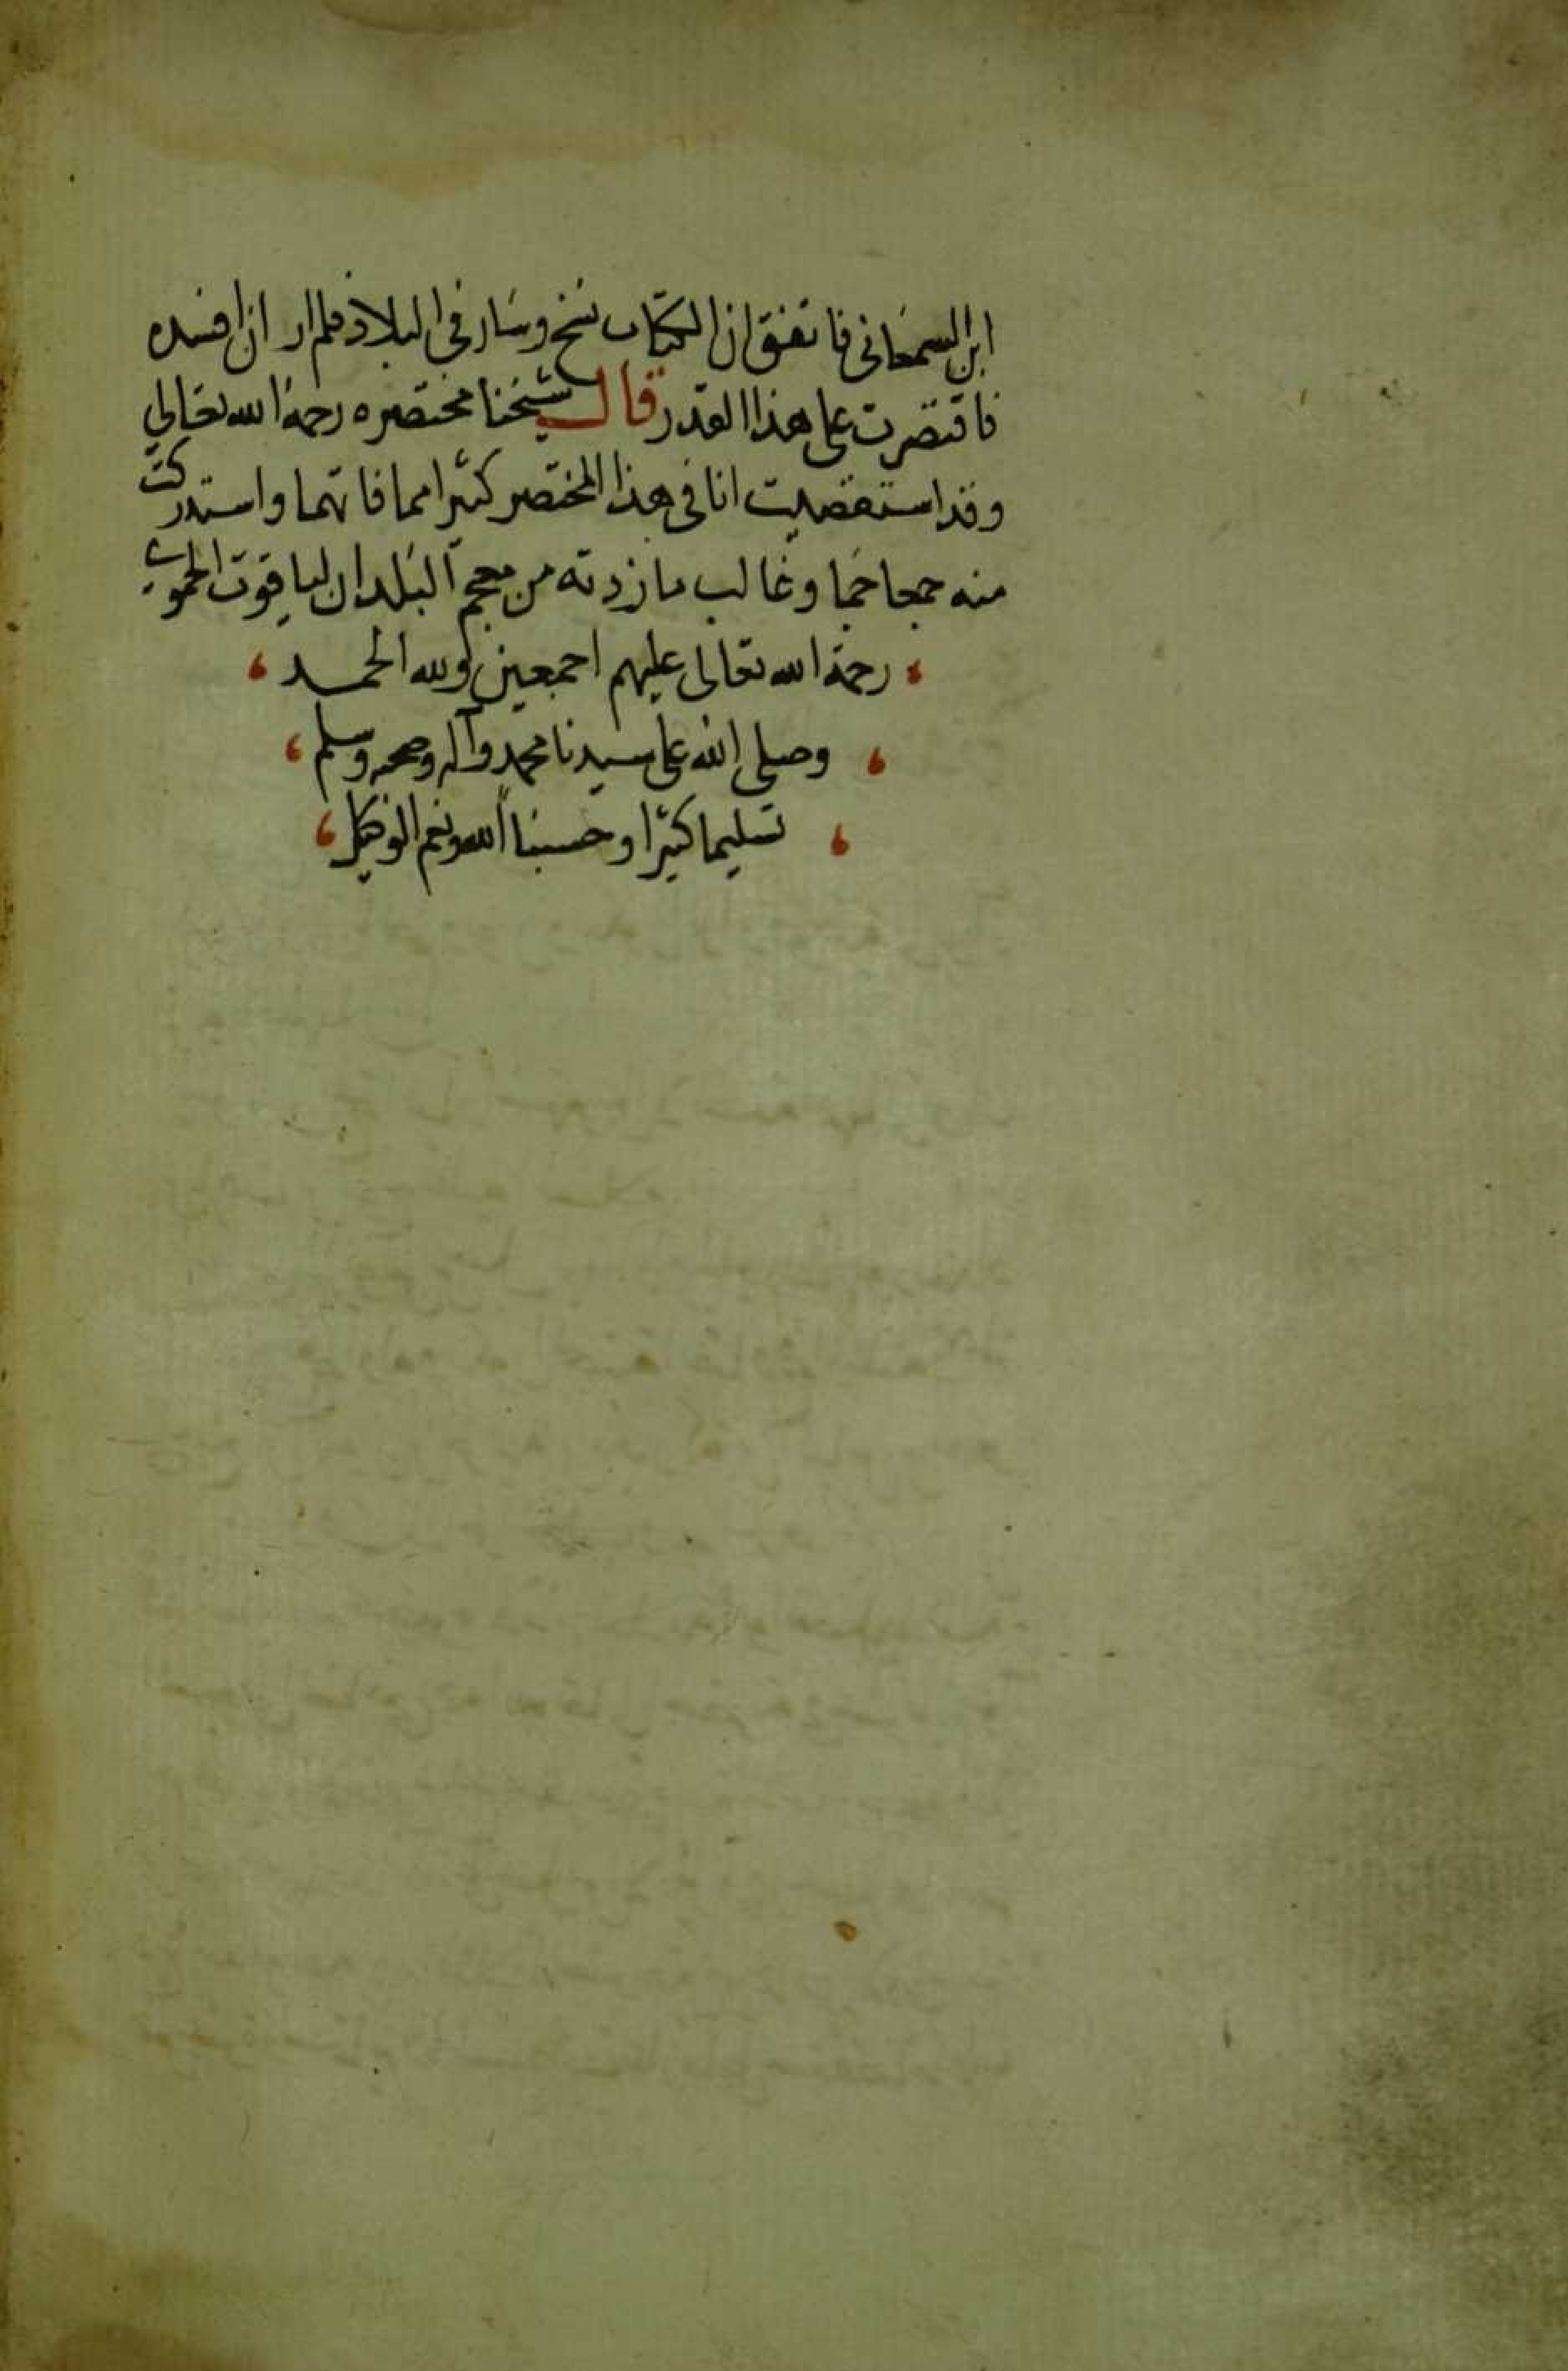 ابن السمعانى فاتفق ان الكتاب نسخ وسار فى البلاد فلم ار ان افسده
فاقتصرت على هذا القدر قال شيخنا مختصره رحمه الله تعالى
وقد استقصيت انا فى هذا المختصر كثيرا مما فاتهما واستدركت
منه جمعا جما وغالب ما زدته من معجم البلدان لياقوت الحموى
رحمة الله تعالى عليهم اجمعين ولله الحمد
وصلى الله على سيدنا محمد وآله وصحبه وسلم
تسليما كثيرا وحسبنا الله ونعم الوكيل